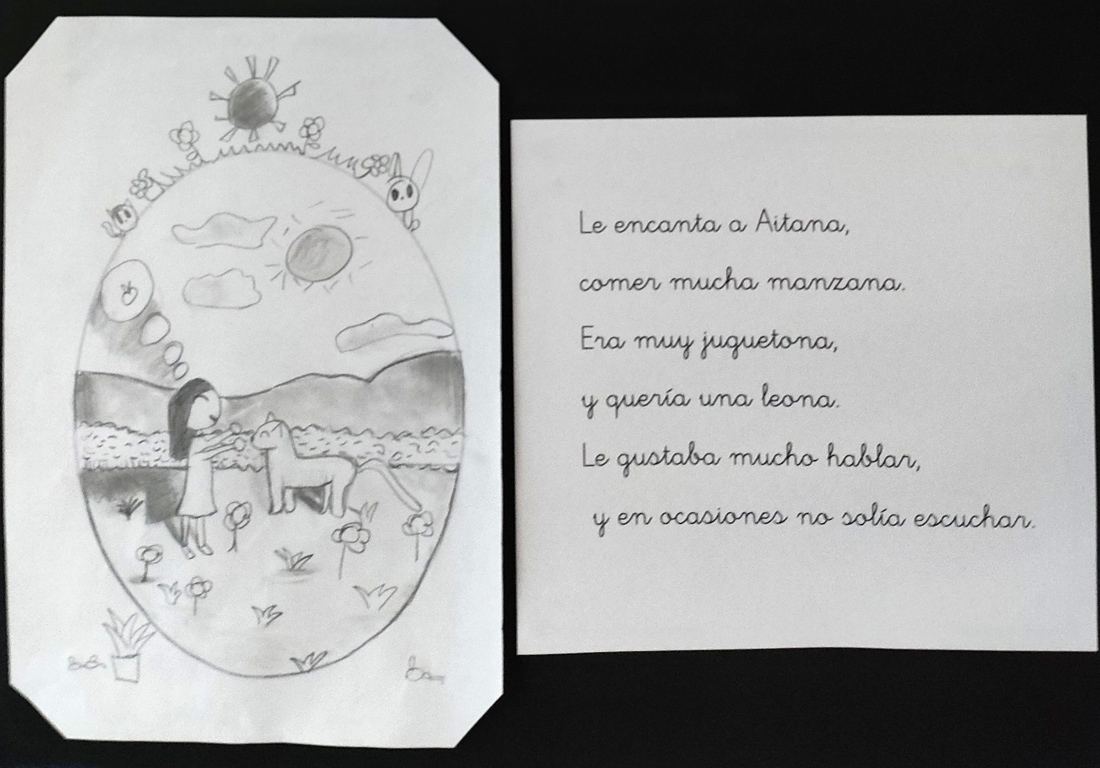 Le encanta a Aitana,
comer mucha manzana.
Era muy juguetona,
y quería una leona.
Le gustaba mucho hablar,
y en ocasiones no solía escuchar.